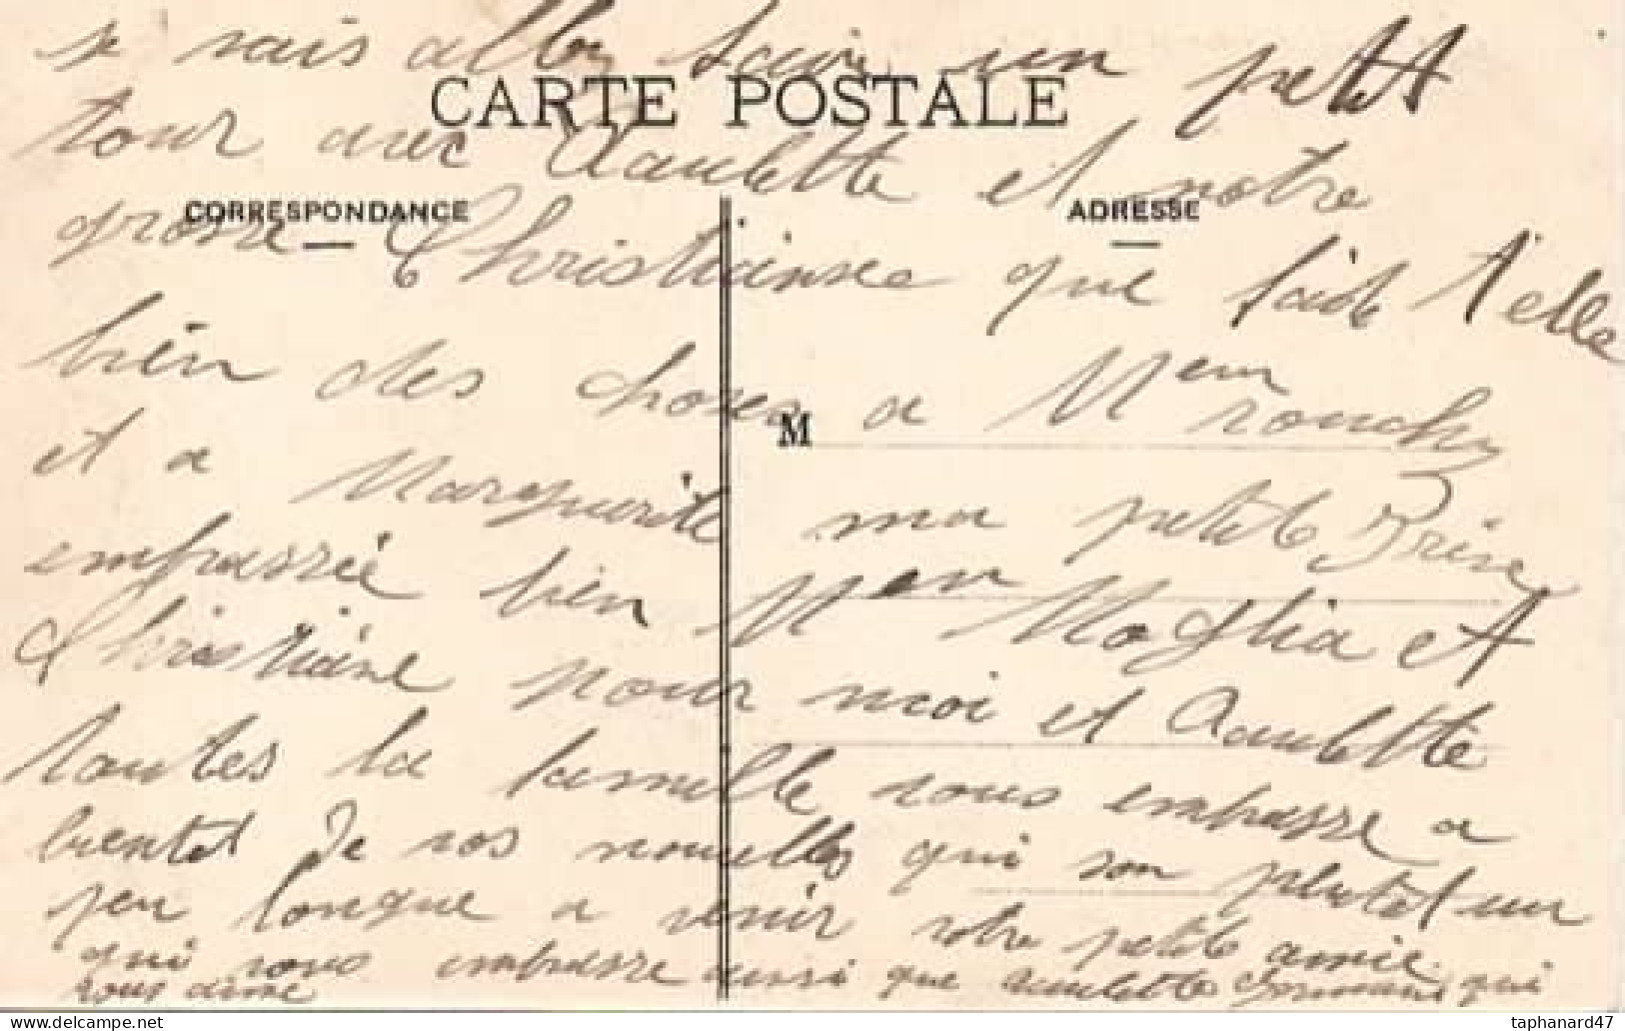 je vais aller faire un petit
CARTE POSTALE
tour avec Paulette et notre
CORRESPONDANCE ADRESSE
grosse Christianne que faite t'elle
bien des choses a Mem rouchy
M
et a Marguerite ma petite
embrassée bien Mem Moglia et
Christiane pour moi et Paulette
toutes la famille vous embrasse a
bientot de vos nouvelles qui son plutot un
peu longue a venir votre petite amie
qui vous embrasse aussi que Paulette qui
vous aime
taphanard47